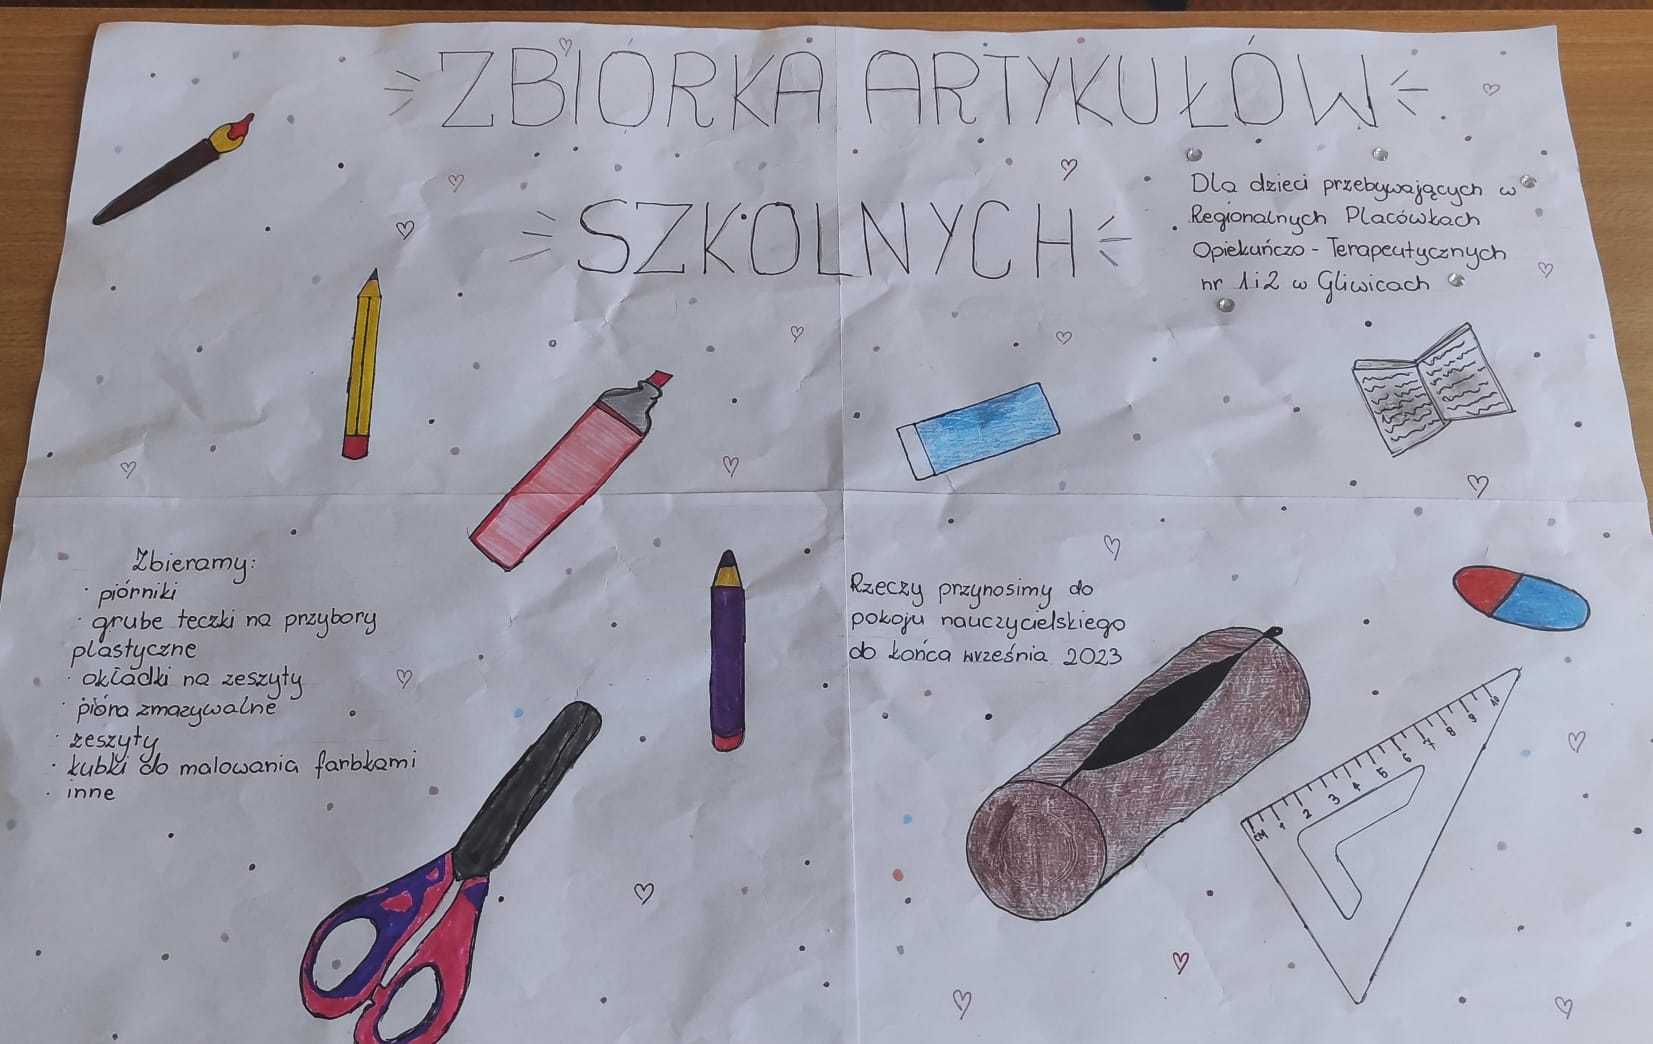 ZBIÓRKA ARTYKUŁÓW
SZKOLNYCH
Dla dzieci przebywających w
Regionalnych Placówkach
Opiekuńczo - Terapeutycznych
nr 1 i 2 w Gliwicach
Zbieramy:
· piórniki
· grube teczki na przybory
plastyczne
· okładki na zeszyty
· pióra zmazywalne
· zeszyty
· kubki do malowania farbkami
· inne
Rzeczy przynosimy do
pokoju nauczycielskiego
do końca września 2023
CM 1 2 3 4 5 6 7 8 9 10